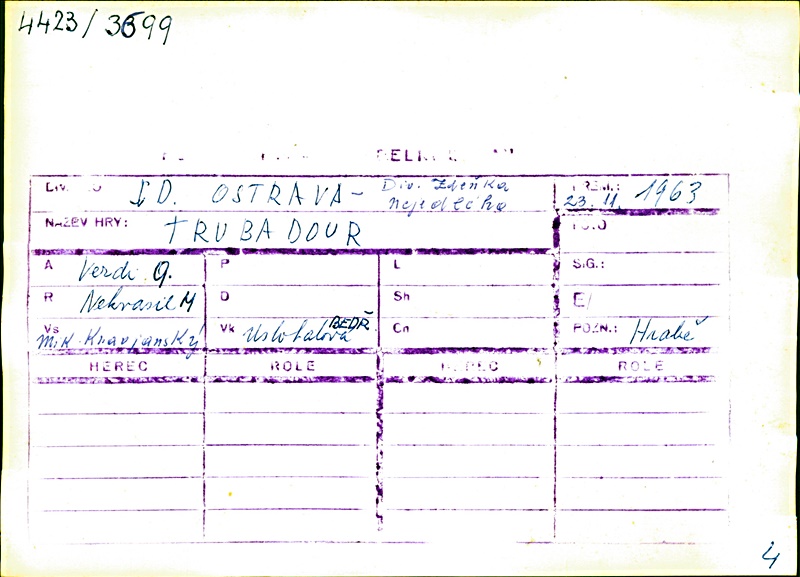 4423/3699
DIVADLO SD. OSTRAVA - Div. Zdeňka Nejedlého
PREM.: 23. 11. 1963
NÁZEV HRY: TRUBADOUR
FOTO
A Verdi G. P L SIG.:
R Nekvasil M D Sh E/
Vs Mik. Kravjanský Vk BEDŘ. Cn POZN.: Hrabě
HEREC ROLE HEREC ROLE
4